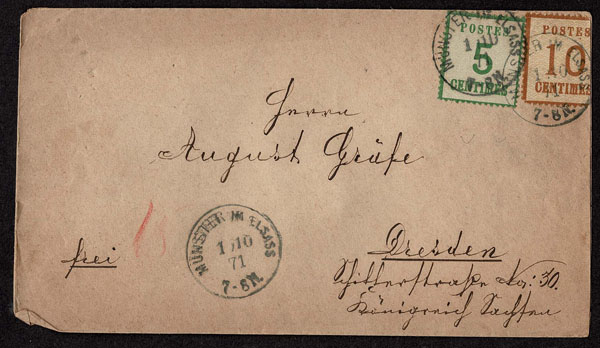 MÜNSTER IM ELSASS
1 10
7-8N.
POSTES
5
CENTIMES
POSTES
10
CENTIMES
1 10
71
7-8N.
Herrn
August Gräfe
MÜNSTER IM ELSASS
1 10
71
7-8N.
frei
Dresden
No: 30.
Königreich Sachsen